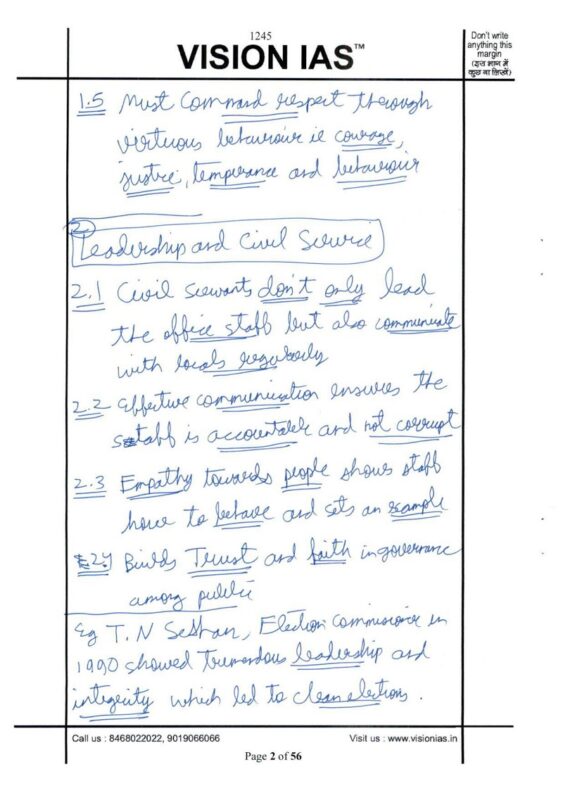 1245
VISION IAS™
Don't write
anything this
margin
(इस भाग में
कुछ ना लिखें)
1.5 Must Command respect through
virtuous behaviour ie courage,
justice, temperance and behaviour
2
Leadership and Civil Service
2.1 Civil servants don't only lead
the office staff but also communicate
with locals regularly
2.2 Effective communication ensures the
staff is accountable and not corrupt
2.3 Empathy towards people shows staff
how to behave and sets an example
2.4 Builds Trust and faith in governance
among public
Eg T. N Seshan, Election Commissioner in
1990 showed tremendous leadership and
integrity which led to clean elections.
Call us : 8468022022, 9019066066
Visit us : www.visionias.in
Page 2 of 56